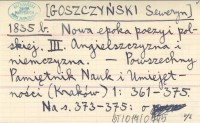 [GOSZCZYŃSKI Seweryn]
1835 b. Nowa epoka poezyi pol-
skiej. III. Angielszczyzna i
niemczyzna. — Powszechny
Pamiętnik Nauk i Umiejęt-
ności (Kraków) 1: 361-375.
Na s. 373-375: o